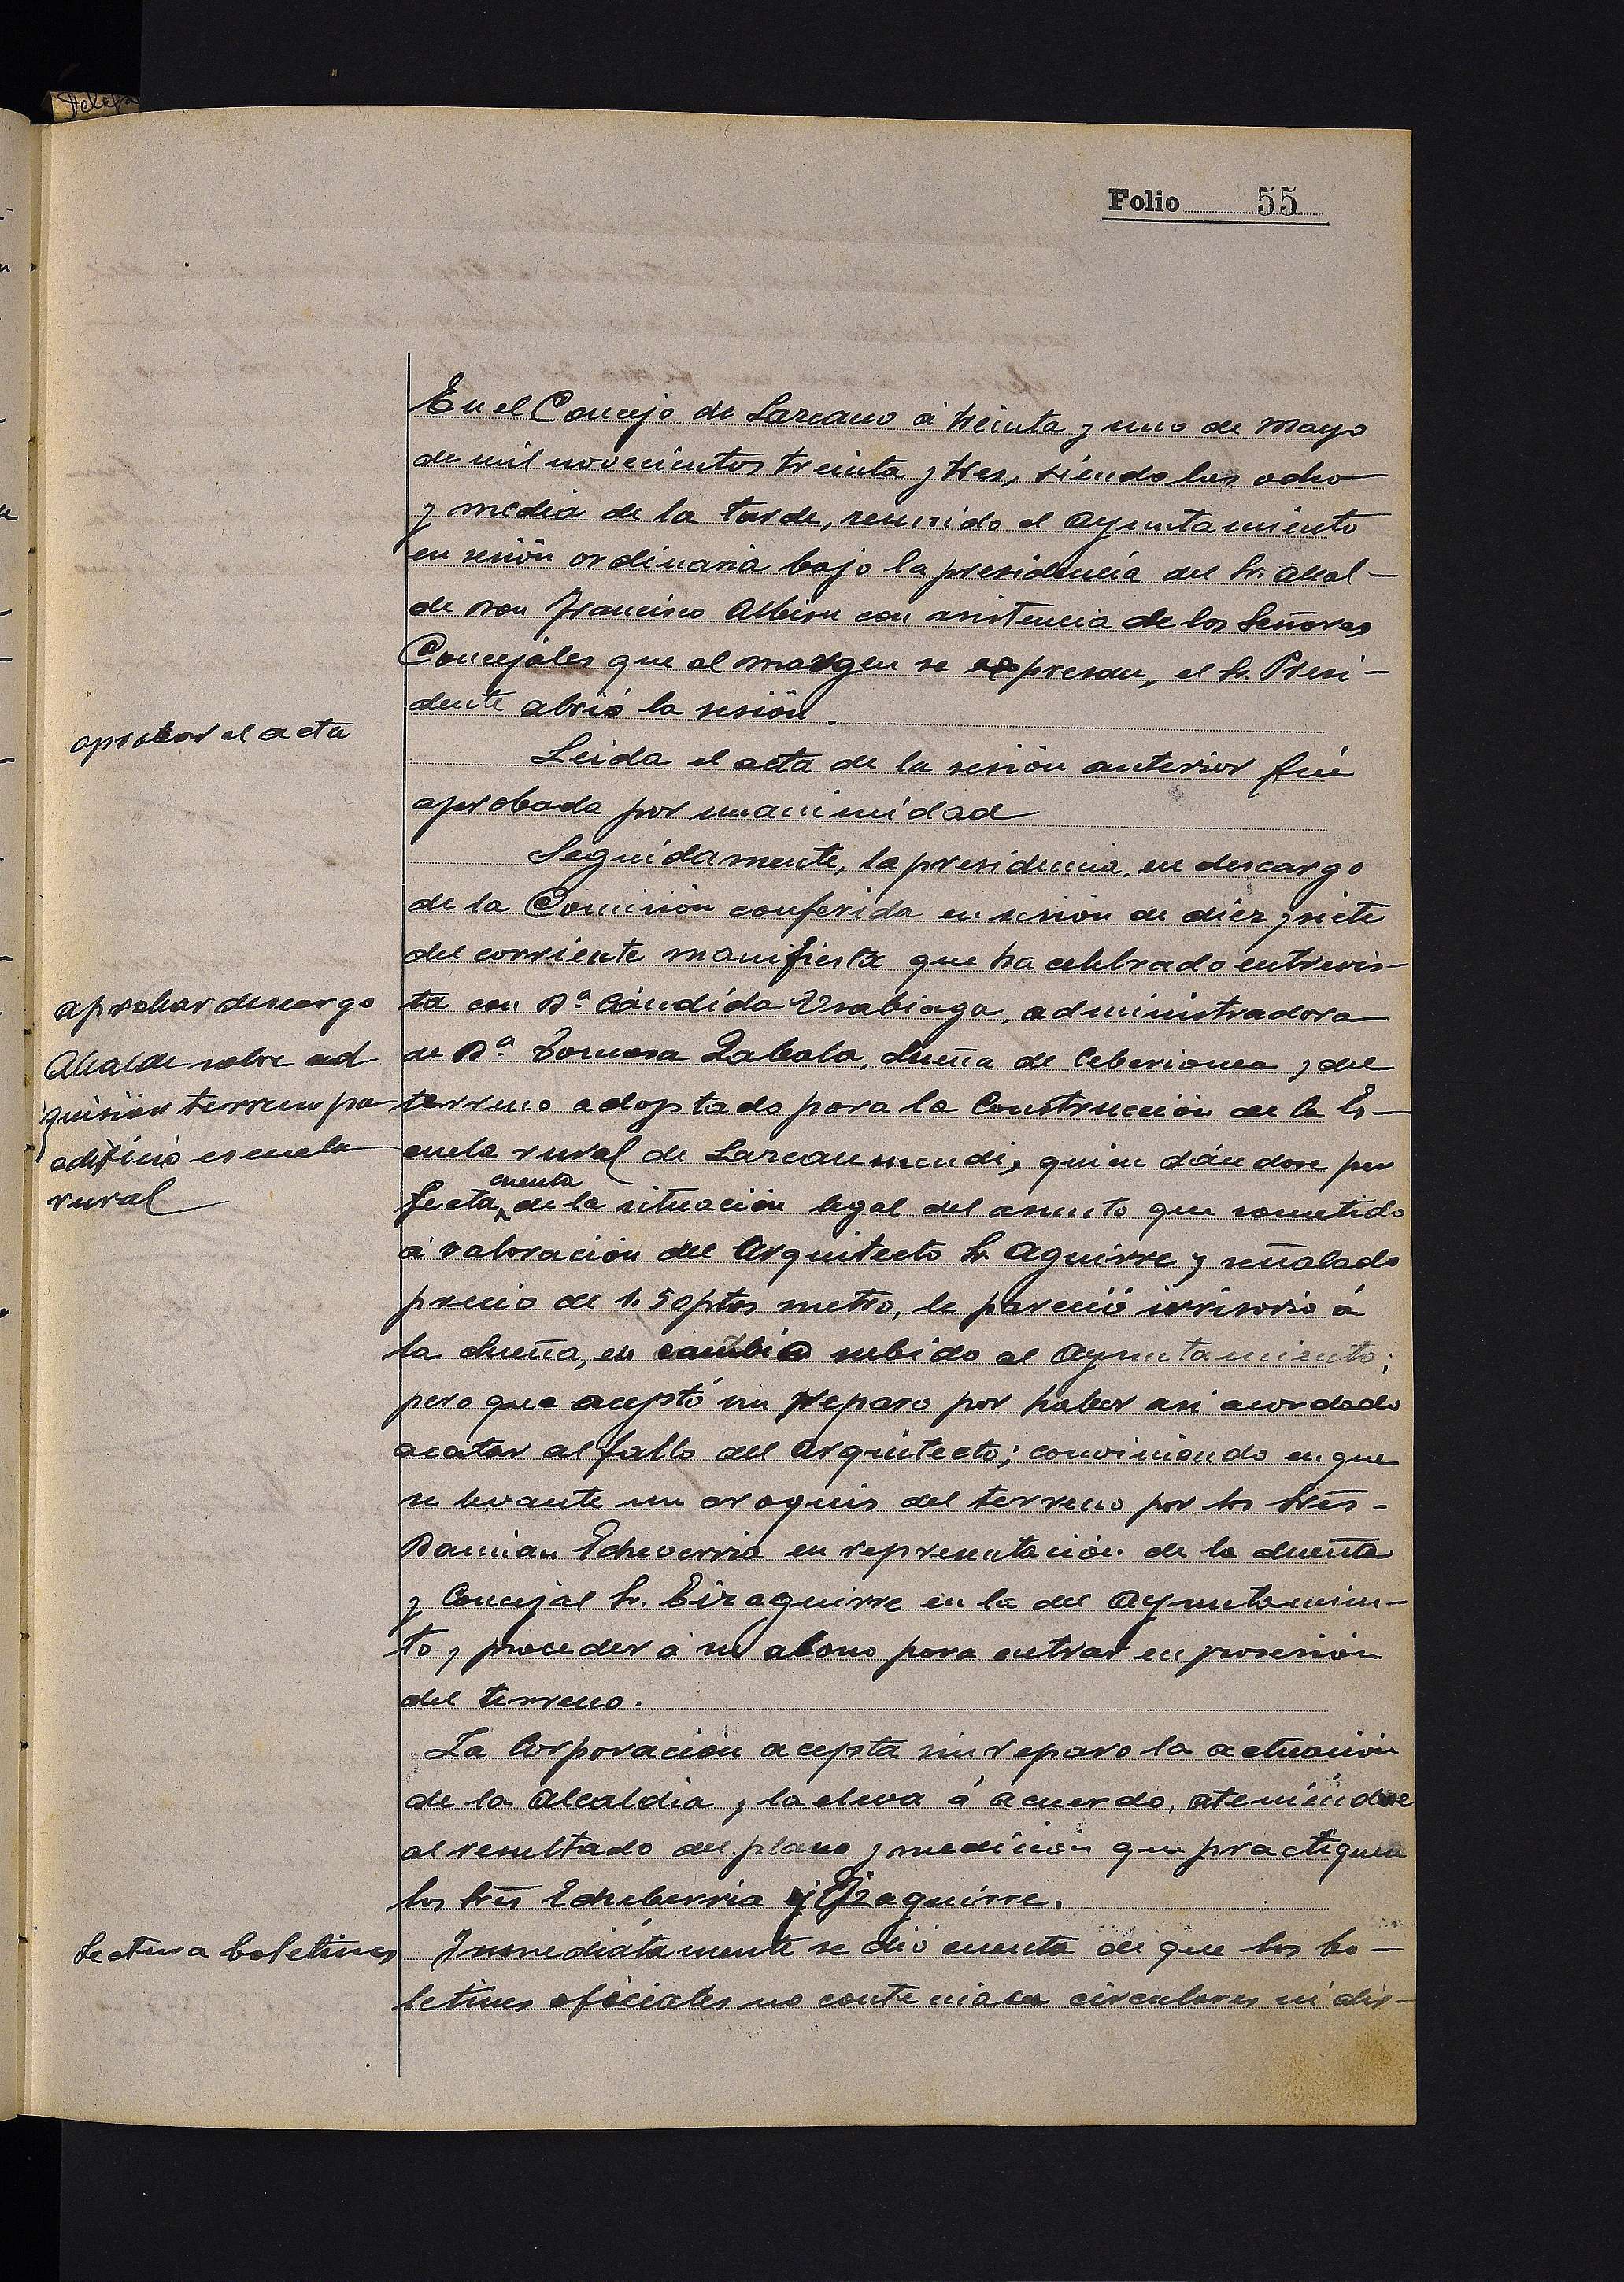 Folio 55
En el Concejo de Lazcano á treinta y uno de Mayo
de mil novecientos treinta y tres, siendo las ocho
y media de la tarde, reunido el Ayuntamiento
en sesión ordinaria bajo la presidencia del Sr. Alcal-
de Don Francisco Albisu con asistencia de los Señores
Concejales que al margen se expresan, el Sr. Presi-
dente abrió la sesión.
aprobar el acta
Leida el acta de la sesión anterior fué
aprobada por unanimidad
Seguidamente, la presidencia, en descargo
de la Comisión conferida en sesión de diez y siete
del corriente manifiesta que ha celebrado entrevis-
aprobar descargo
Alcalde sobre ad
quisión terreno pa
edificio escuela
rural
ta con Dª Cándida Usabiaga, administradora
de Dª Tomasa Zabala, dueña de Ceberionea y del
terreno adoptado para la Construcción de la Es-
cuela rural de Lazcaumendi, quien dándose per
fecta cuenta de la situación legal del asunto que sometido
á valoración del Arquitecto Sr Aguirre y señalado
precio de 1.50 ptas metro, le pareció irrisorio á
la dueña, en cambio subido al Ayuntamiento;
pero que aceptó sin reparo por haber asi acordado
acatar al fallo del Arquitecto; conviniendo en que
se levante un croquis del terreno por los Srés-
Damian Echeverria en representación de la dueña
y Concejal Sr. Eizaguirre en la del Ayuntamien-
to, y proceder á su abono para entrar en posesión
del terreno.
La Corporación acepta sin reparo la actuación
de la Alcaldia y la eleva á acuerdo, ateniéndose
al resultado del plano y medición que practiquen
los Srés Echeberria y Eizaguirre.
Lectura boletines
Inmediatamente se dió cuenta de que los bo-
letines oficiales no contenian circulares ni dis-